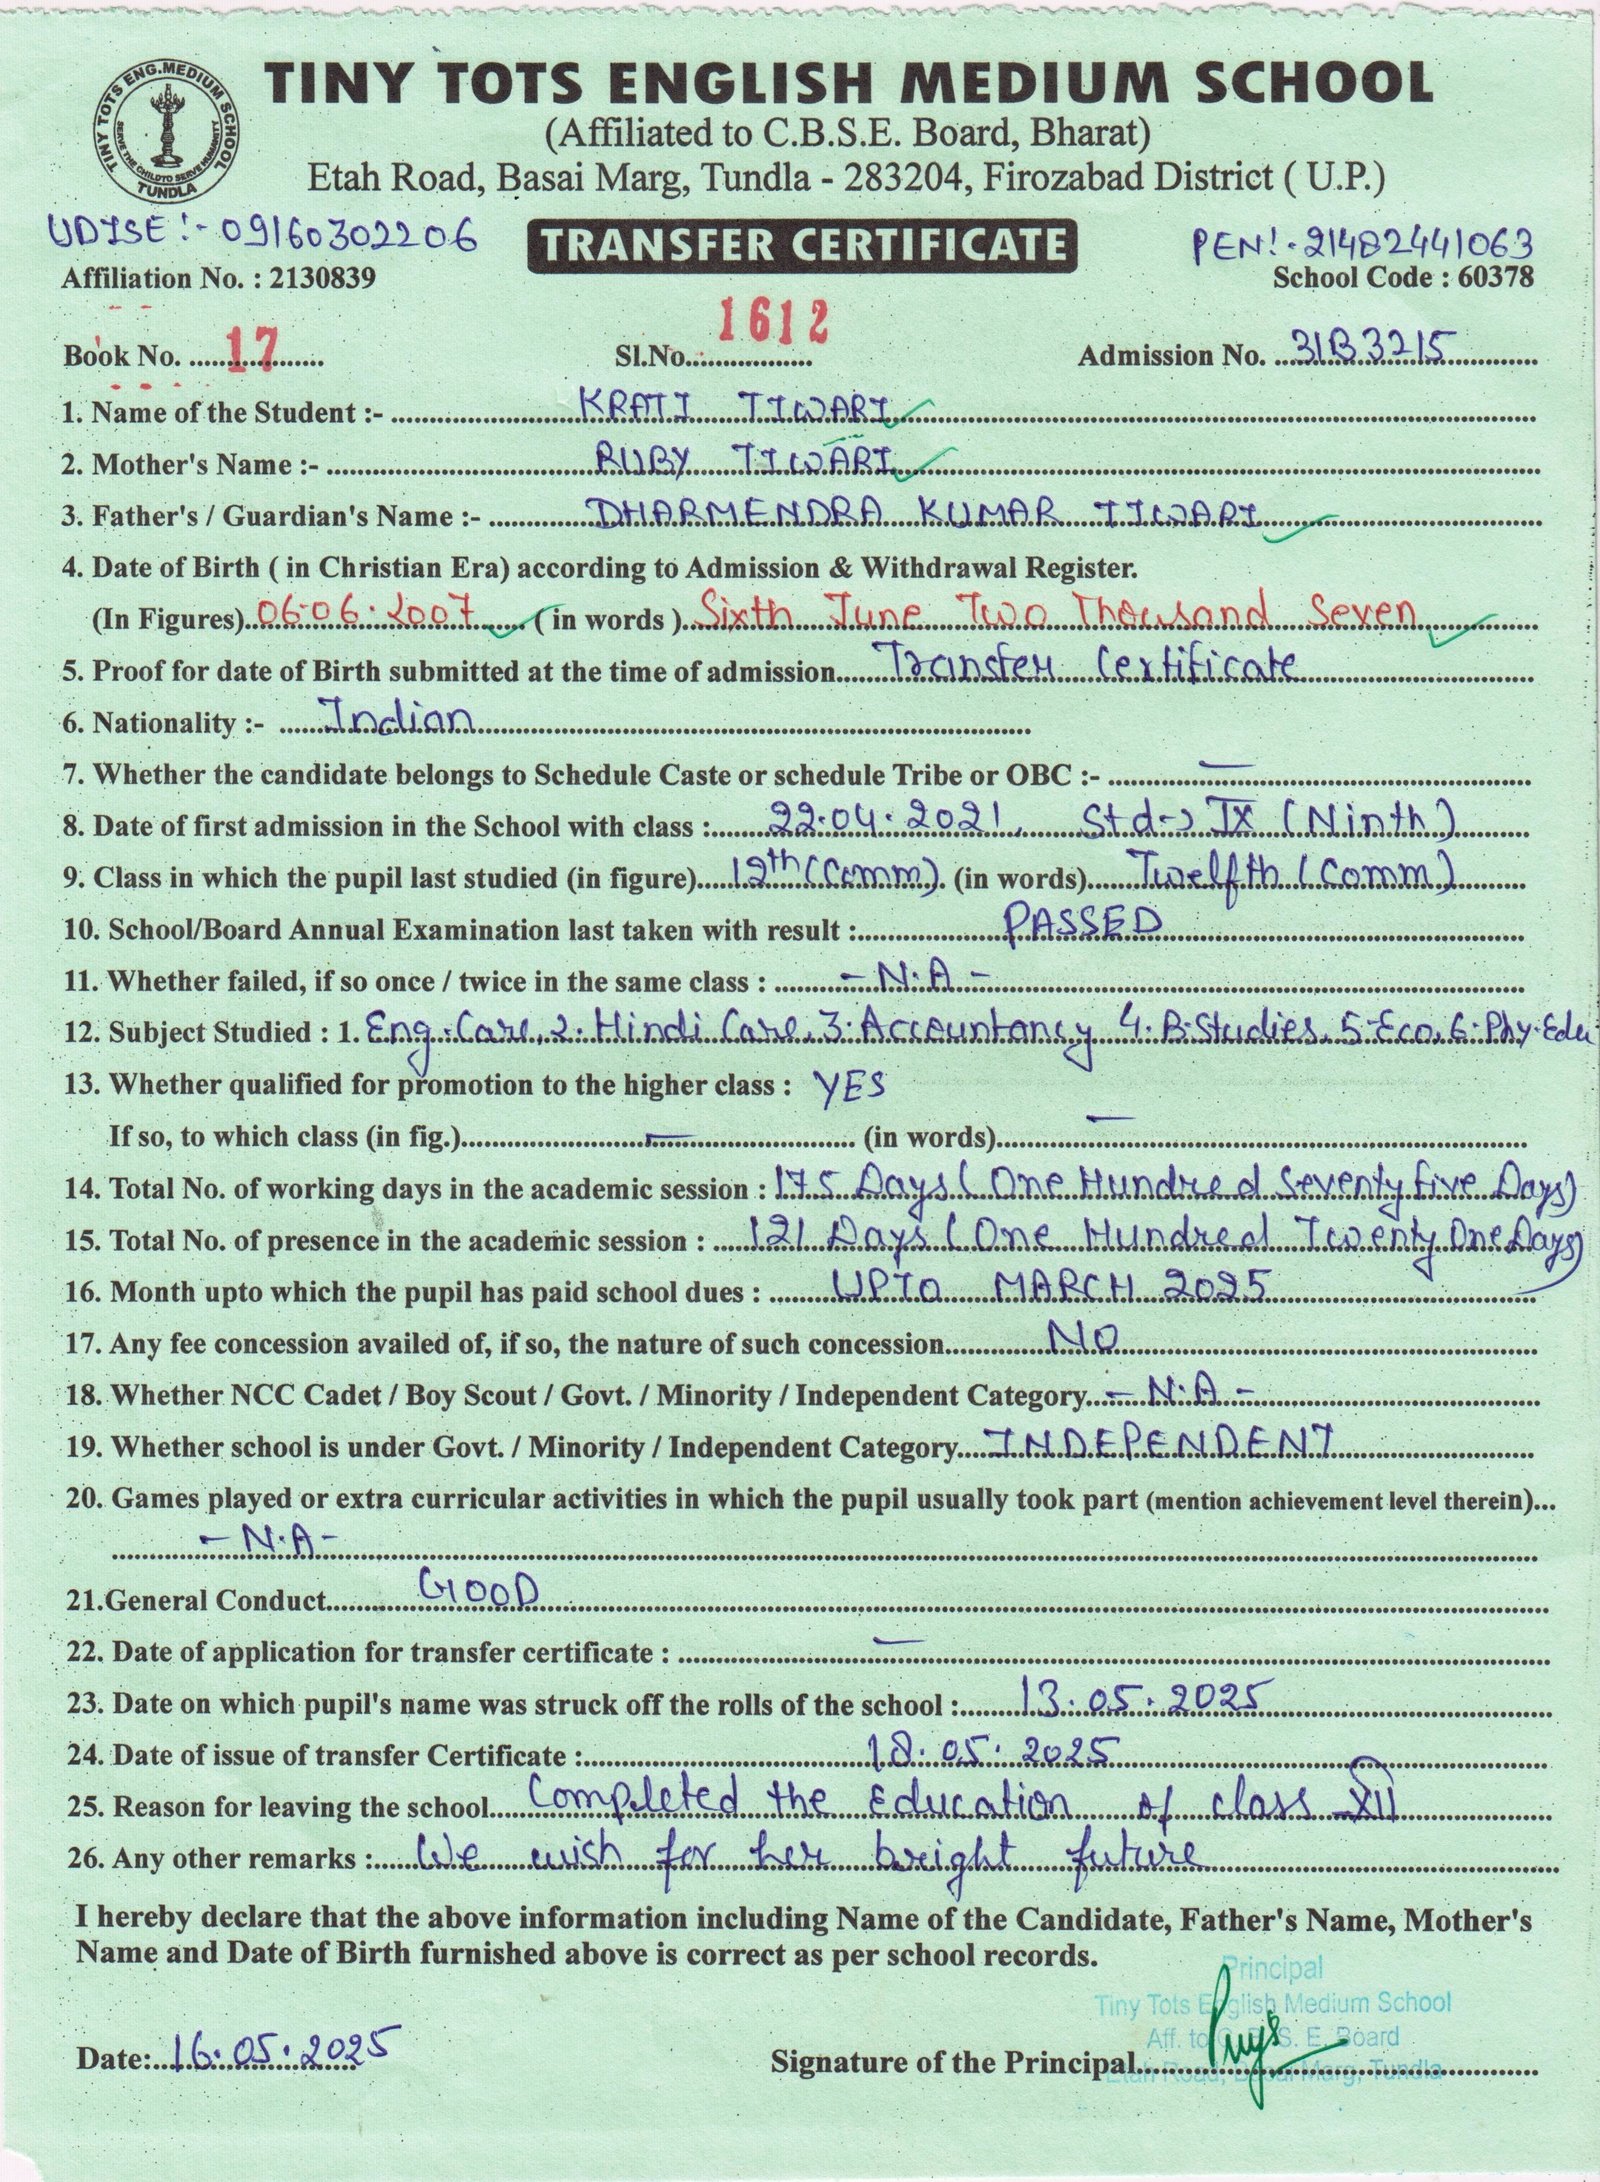 TINY TOTS ENG.MEDIUM SCHOOL
SERVE THE CHILD TO SERVE HUMANITY
TUNDLA
TINY TOTS ENGLISH MEDIUM SCHOOL
(Affiliated to C.B.S.E. Board, Bharat)
Etah Road, Basai Marg, Tundla - 283204, Firozabad District ( U.P.)
UDISE:- 09160302206 TRANSFER CERTIFICATE PEN:- 21482441063
Affiliation No. : 2130839 School Code : 60378
Book No. 17 Sl.No. 1612 Admission No. 31B3215
1. Name of the Student :- KRATI TIWARI
2. Mother's Name :- RUBY TIWARI
3. Father's / Guardian's Name :- DHARMENDRA KUMAR TIWARI
4. Date of Birth ( in Christian Era) according to Admission & Withdrawal Register.
(In Figures) 06.06.2007 ( in words ) Sixth June Two Thousand Seven
5. Proof for date of Birth submitted at the time of admission Transfer Certificate
6. Nationality :- Indian
7. Whether the candidate belongs to Schedule Caste or schedule Tribe or OBC :- —
8. Date of first admission in the School with class : 22.04.2021, Std→ IX (Ninth)
9. Class in which the pupil last studied (in figure) 12th (Comm) (in words) Twelfth (Comm)
10. School/Board Annual Examination last taken with result : PASSED
11. Whether failed, if so once / twice in the same class : - N.A -
12. Subject Studied : 1. Eng. Core, 2. Hindi Core, 3. Accountancy 4. B. Studies, 5. Eco, 6. Phy. Edu
13. Whether qualified for promotion to the higher class : YES
If so, to which class (in fig.) — (in words) —
14. Total No. of working days in the academic session : 175 Days (One Hundred Seventy five Days)
15. Total No. of presence in the academic session : 121 Days (One Hundred Twenty One Days)
16. Month upto which the pupil has paid school dues : UPTO MARCH 2025
17. Any fee concession availed of, if so, the nature of such concession NO
18. Whether NCC Cadet / Boy Scout / Govt. / Minority / Independent Category - N.A -
19. Whether school is under Govt. / Minority / Independent Category INDEPENDENT
20. Games played or extra curricular activities in which the pupil usually took part (mention achievement level therein)...
- N.A -
21.General Conduct GOOD
22. Date of application for transfer certificate : —
23. Date on which pupil's name was struck off the rolls of the school : 13.05.2025
24. Date of issue of transfer Certificate : 18.05.2025
25. Reason for leaving the school Completed the Education of class XII
26. Any other remarks : We wish for her bright future
I hereby declare that the above information including Name of the Candidate, Father's Name, Mother's
Name and Date of Birth furnished above is correct as per school records.
Principal
Tiny Tots English Medium School
Aff. to C. B. S. E. Board
Etah Road, Basai Marg, Tundla
Date: 16.05.2025 Signature of the Principal